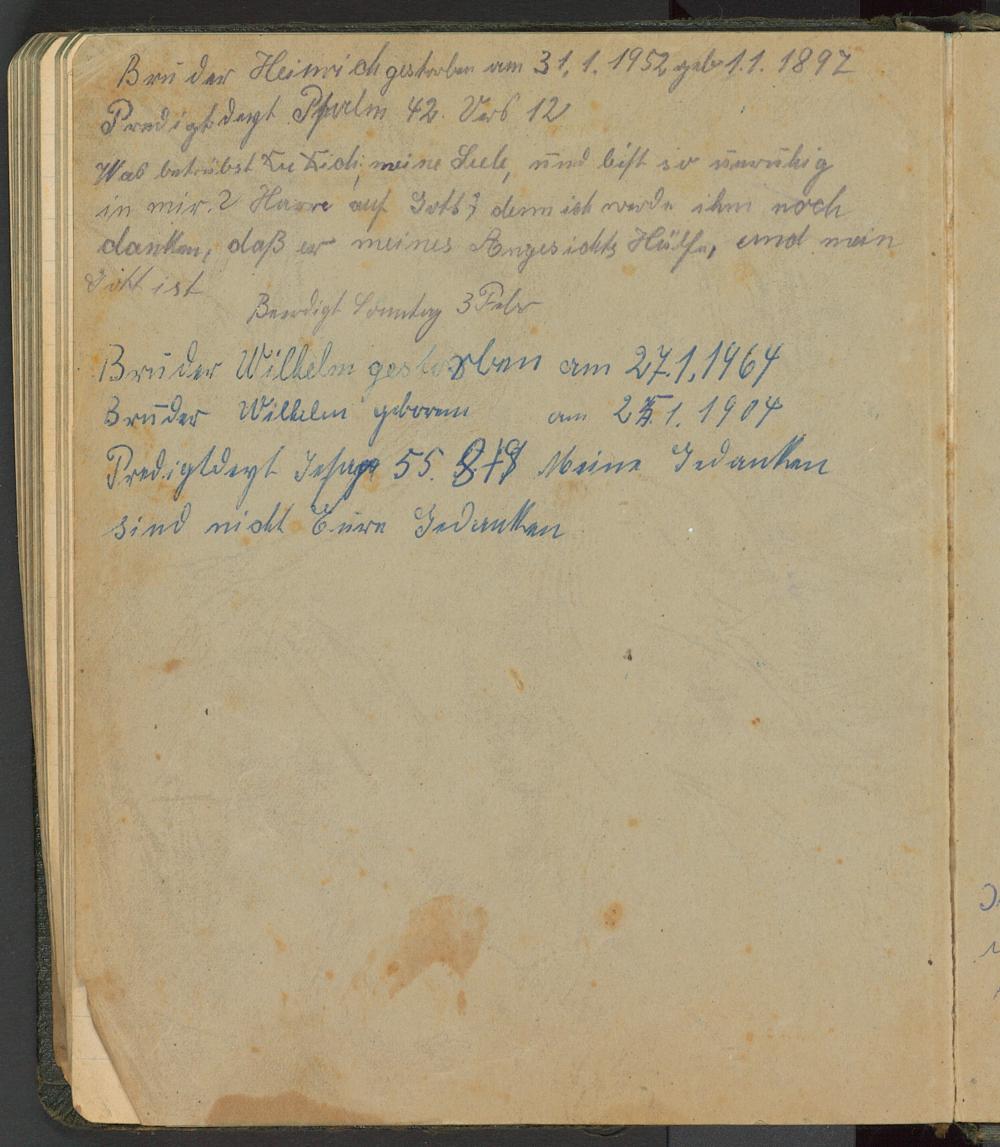 Bruder Heinrich gestorben am 31.1.1952 geb 1.1.1897
Predigtdext Psalm 42. Vers 12
Was betrübst Du Dich, meine Seele, und bist so unruhig
in mir? Harre auf Gott; denn ich werde ihm noch
danken, daß er meines Angesichts Hülfe, und mein
Gott ist
Beerdigt Sonntag 3 Febr
Bruder Wilhelm gestorben am 27.1.1964
Bruder Wilhelm geboren am 25.1.1904
Predigtdext Jesaja 55. 8+9 Meine Gedanken
sind nicht Eure Gedanken